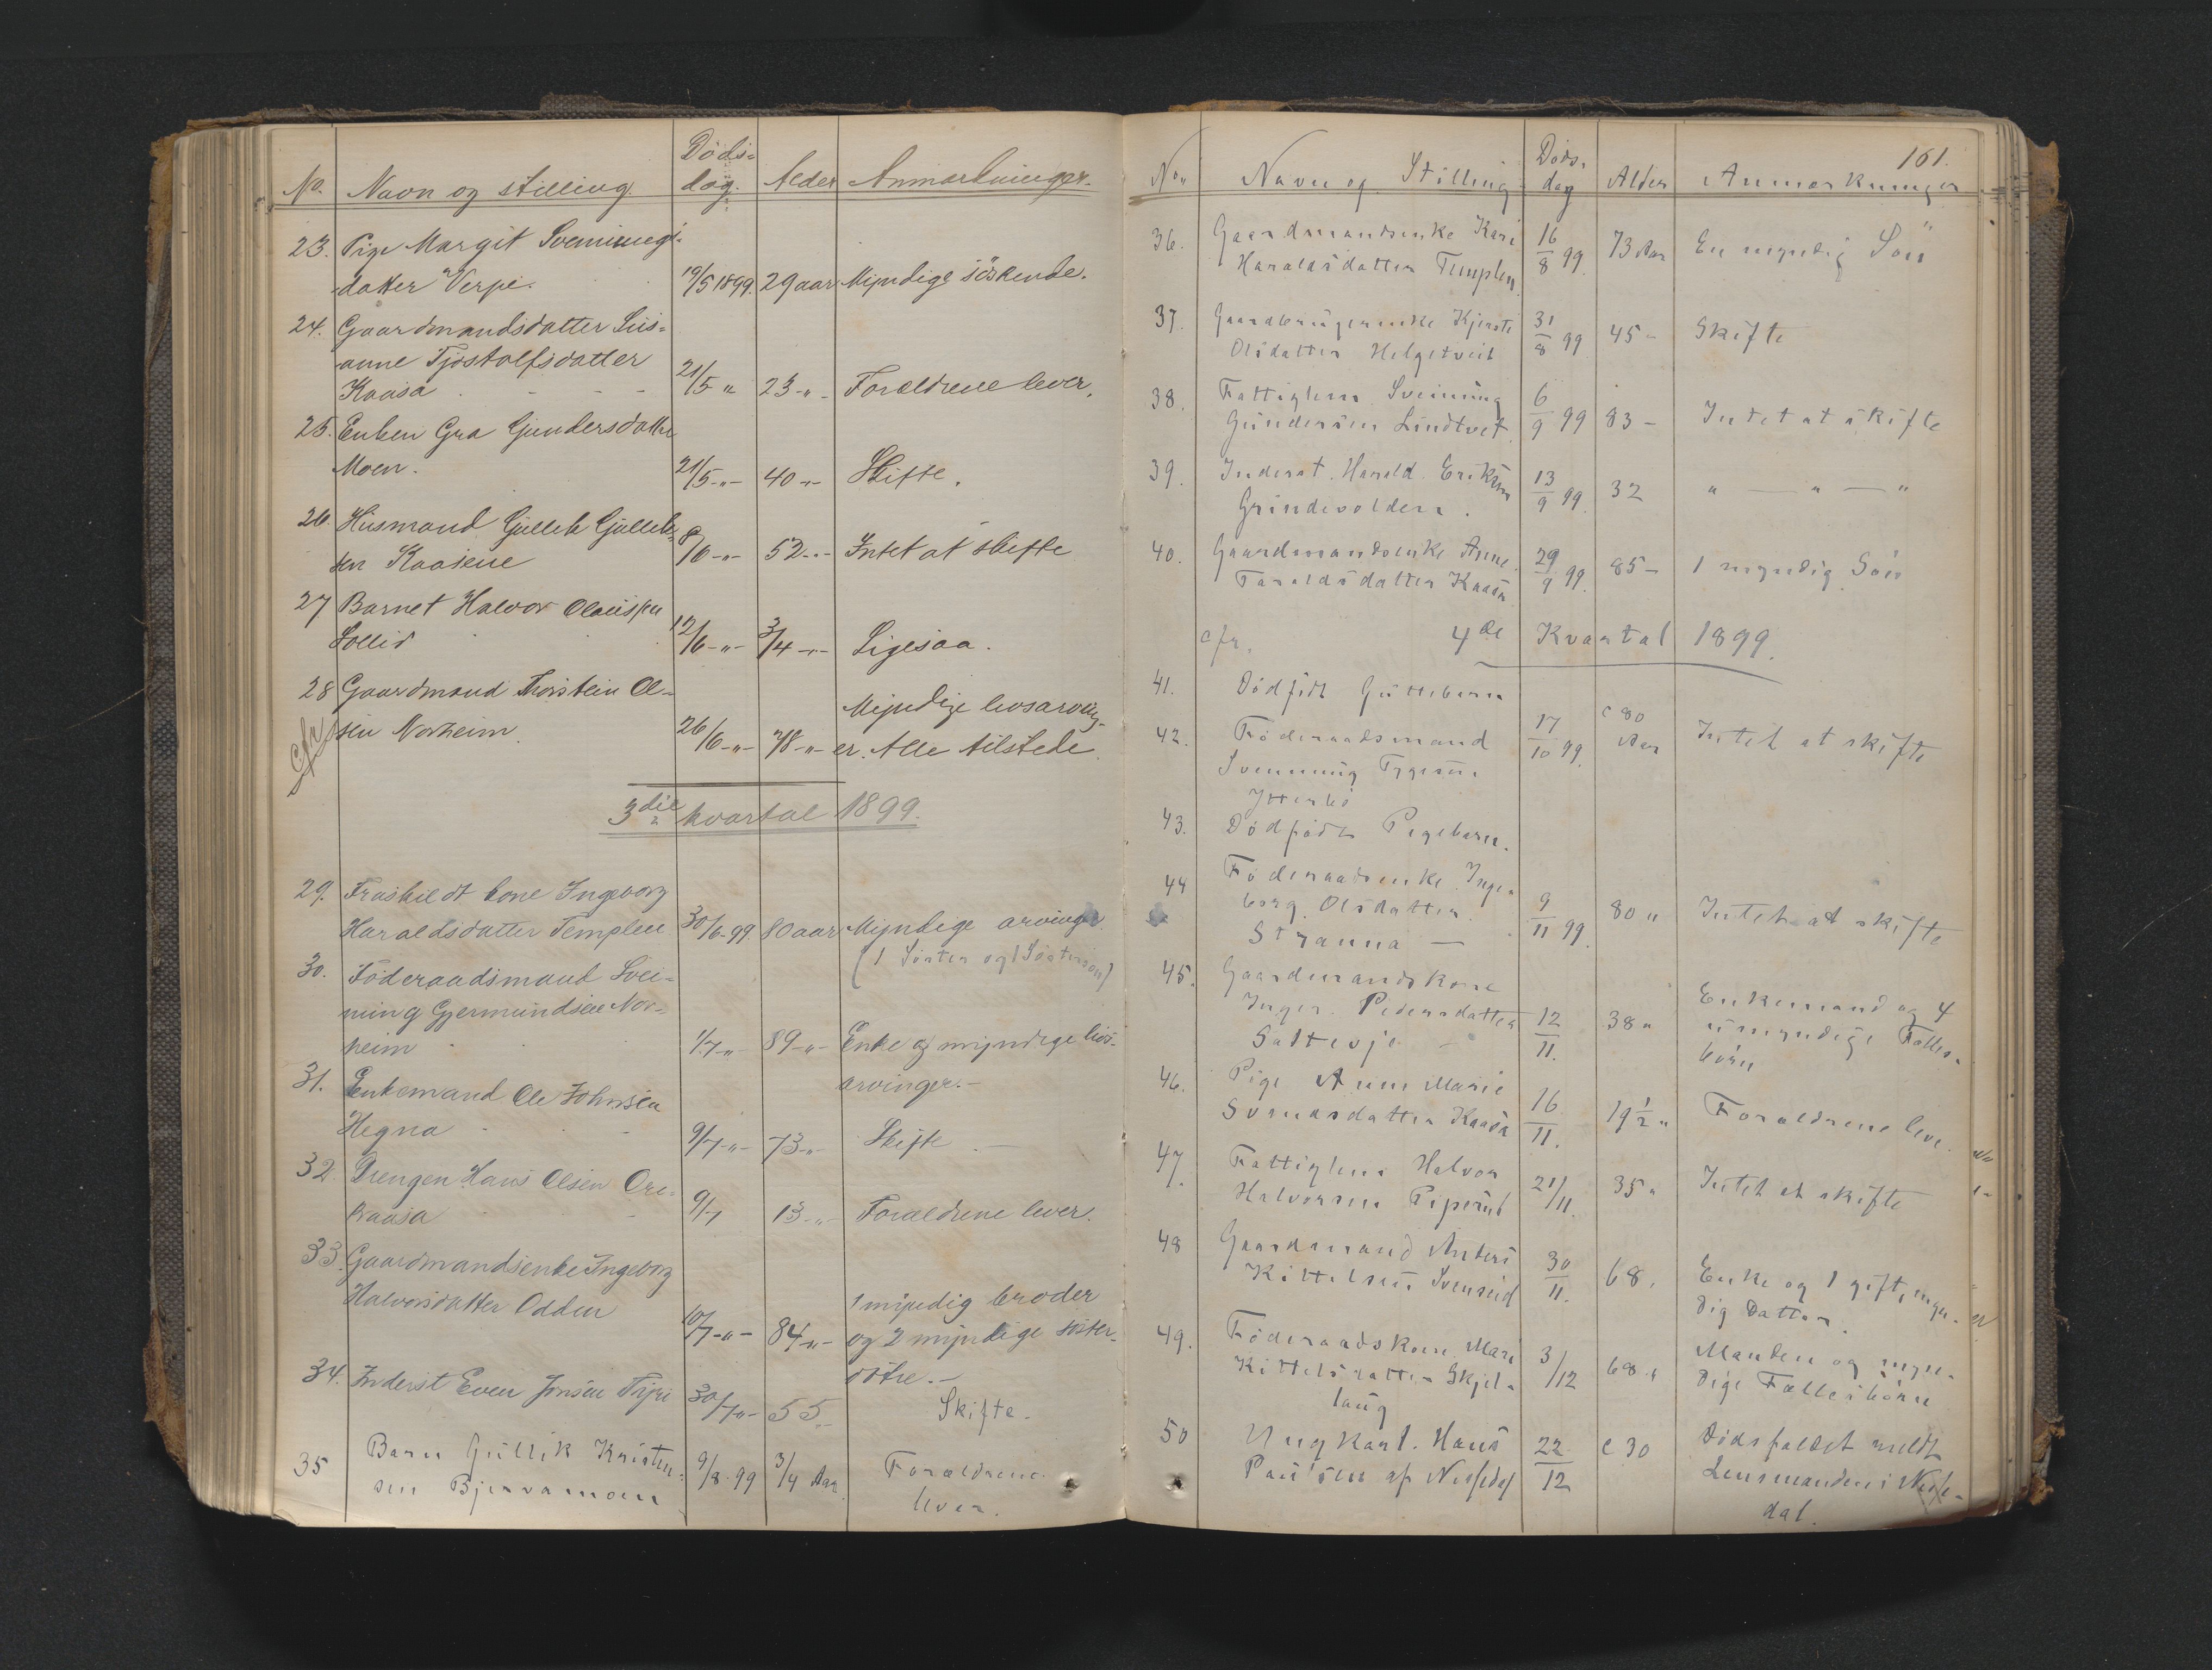 No. Navn og stilling. Döds= dag. Alder Anmærkninger.
23. Pige Margit Svenungs-
datter Verpe. 19/5 1899. 29 aar Myndige söskende.
24. Gaardmandsdatter Sus=
anne Tjostolfsdatter
Kaasa 21/5 " 23 -"- Forældrene lever.
25. Enken Gra Gundersdatter
Moen. 21/5 -"- 40 -"- Skifte.
26. Husmand Gullek Gullek-
sen Kaasene 8/6 -"- 52 -"- Intet at skifte
27 Barnet Halvor Olausen
Sollid 12/6 -"- 3/4 -"- Ligesaa.
28 Gaardmand Thorstein Ol- Myndige livsarving-
sen Norheim. 26/6 -"- 78 -"- er. Alle tilstede.
cfr
3die kvartal 1899.
29. Fraskildt kone Ingeborg
Haraldsdatter Templen 30/6-99. 80 aar Myndige arvinger
(1 Söster og 1 Söstersön)
30. Föderaadsmand Svei=
nung Gjermundsen Nor=
heim 1/7 -"- 89 -"- Enke og myndige livs-
arvinger.-
31. Enkemand Ole Johnsen
Hegna 9/7 -"- 73 -"- Skifte
32. Drengen Hans Olsen Ore-
kaasa 9/7 13 -"- Forældrene lever.
33. Gaardmandsenke Ingeborg
Halvorsdatter Odden 1 myndig broder
10/7 -"- 84 -"- og 2 myndige söster-
34. Inderst Even Jonsen dötre.-
30/7 "- 55 Skifte.
35 Barn Gullik Kristen-
sen Bjervamoen 9/8 99 3/4 Aar. Forældrene
lever.
161.
No. Navn og Stilling Döds. dag Alder Anmærkninger
36. Gaardmandsenke Kari
Haraldsdatter Templen 16/8 99. 73 Aar En myndig Sön
37. Gaardbrugerenke Kjersti
Olsdatter Helgetveit 31/8 99 45 - Skifte
38. Fattiglem Sveinung
Gundersen Lindtvet 6/9 99 83 - Intet at skifte
39. Inderst. Harald Eriksen
Grindevolden. 13/9 99. 32 " — " — "
40. Gaardmandsenke Anne
Taraldsdatter Kaasa 29/9 99. 85 - 1 myndig Sön
cfr. 4de Kvartal 1899.
41. Dödfödt Guttebarn
42. Föderaadsmand 17/10 99. c 80 Aar Intet at skifte
Svennung Tygesen
Ytterbö
43. Dödfödt Pigebarn.
44 Föderaadsenke Inge-
borg Olsdatter 9/11 99. 80 " Intet at skifte
Stranna —
45. Gaardmandskone
Inger Pedersdatter 12/11. 38 " Enkemand og 4
umyndige Fælles-
börn
46. Pige Anne Marie
Svendsdatter Kaasa 16/11. 19 1/2 " Forældrene leve.
47. Fattiglem Halvor
Halvorsen 21/11. 35 " Intet at skifte
48 Gaardmand Anders
Kittelsen Svenseid 30/11. 68. Enke og 1 gift, myn-
dig Datter.
49. Föderaadskone Mari
Kittelsdatter Skjel- 3/12 68 " Manden og myn-
laug dige Fællesbörn
50 Ungkarl. Hans
Paulsen af Nissedal 22/12 c 30 Dödsfaldet meldt
Lensmanden i Nisse-
dal.